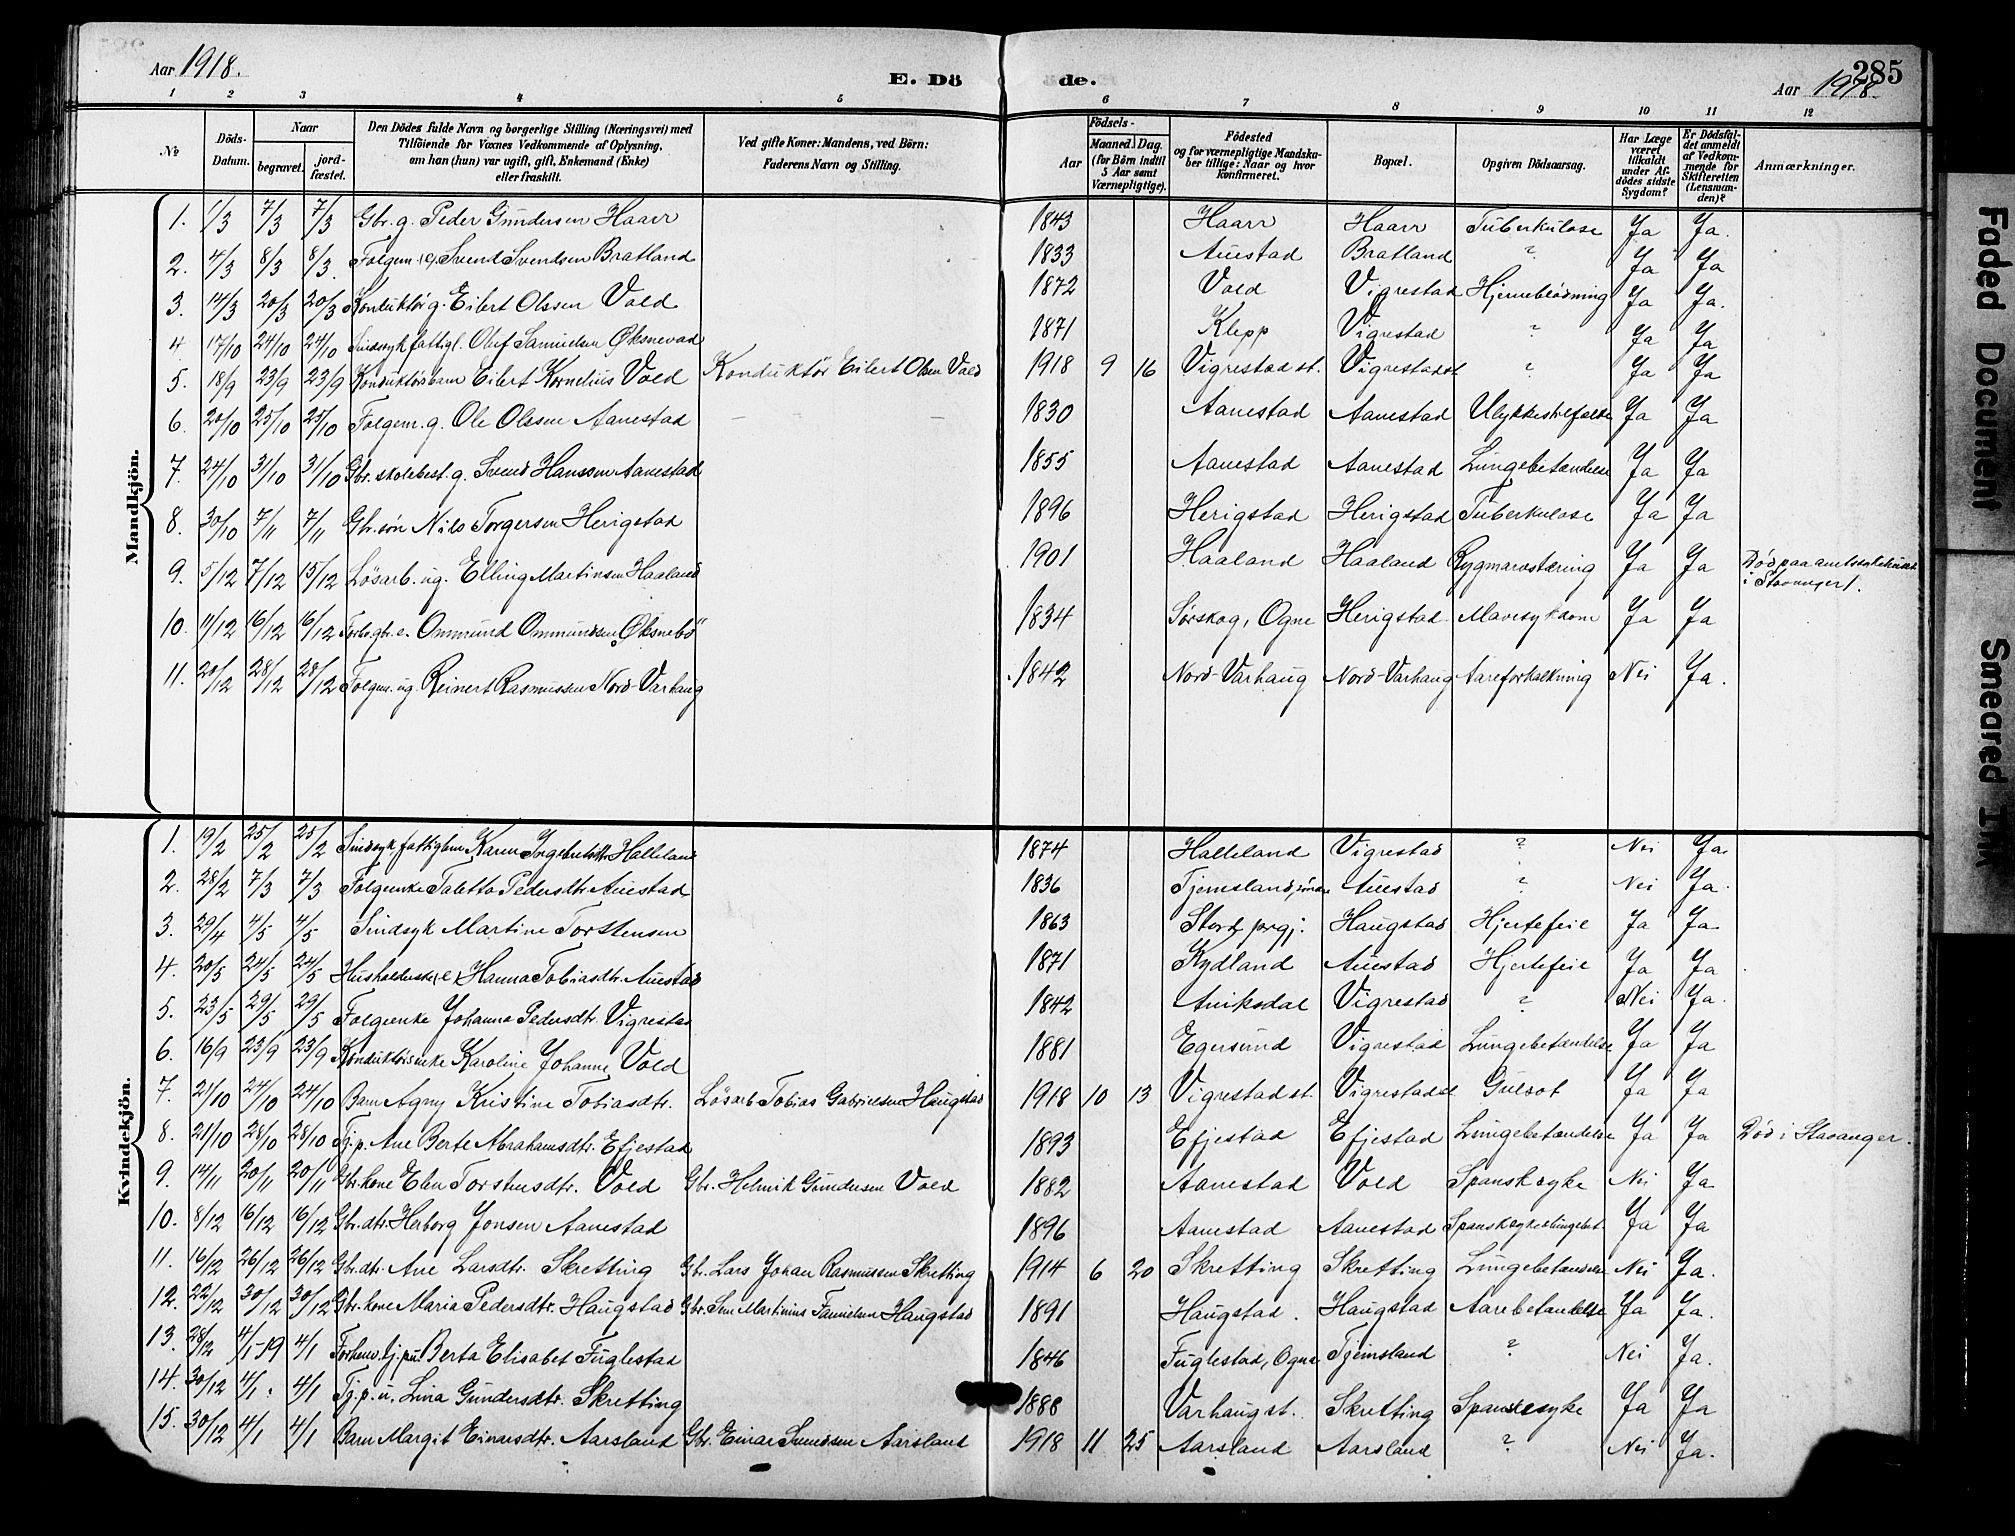 Aar 1918.
E. Dö de.
Aar 1918
285
1 2 3 4 5 6 7 8 9 10 11 12
№
Döds-Datum.
Naar
begravet.
jord-fæstet.
Den Dödes fulde Navn og borgerlige Stilling (Næringsvei) med
Tilföiende for Voxnes Vedkommende af Oplysning,
om han (hun) var ugift, gift, Enkemand (Enke)
eller fraskilt.
Ved gifte Koner: Mandens, ved Börn:
Faderens Navn og Stilling.
Födsels-
Aar
Maaned. Dag.
(for Börn indtil
5 Aar samt
Værnepligtige).
Födested
og for værnepligtige Mandska-
ber tillige: Naar og hvor
konfirmeret.
Bopæl.
Opgiven Dödsaarsag.
Har Læge
været
tilkaldt
under Af-
dödes sidste
Sygdom?
Er Dödsfal-
det anmeldt
af Vedkom-
mende for
Skifteretten
(Lensman-
den)?
Anmærkninger.
Mandkjön.
1. 1/3 7/3 7/3 Gbr. g. Peder Gundersen Haarr 1843 Haarr Haarr Tuberkulose Ja Ja.
2. 4/3 8/3 8/3. Folgem. g. Svend Svendsen Bratland 1833 Auestad Bratland ? Ja Ja
3. 14/3 20/3 20/3 Konduktör g. Eilert Olssen Vold 1872 Vold Vigrestad Hjerneblödning Ja Ja.
4. 17/10 24/10 24/10 Sindssyk fattigl. Oluf Samuelsen Öksnevad 1871 Klepp Vigrestad ? Ja Ja
5. 18/9 23/9 23/9 Konduktörsbarn Eilert Kornelius Vold Konduktör Eilert Olsen Vold 1918 9 16 Vigrestad st. Vigrestad st ? Ja Ja
6. 20/10 25/10 25/10 Folgem. g. Ole Olssen Aanestad 1830 Aanestad Aanestad Ulykkestilfælde Ja Ja
7. 24/10 31/10 31/10 Gbr. skolebest. g. Svend Hanssen Aanestad 1855 Aanestad Aanestad Lungebetændelse Ja Ja
8. 30/10 7/11 7/11 Gbr. sön Nils Torgersen Herigstad 1896 Herigstad Herigstad Tuberkulose Ja Ja
9. 5/12 7/12 15/12 Lösarb. ug. Elling Martinsen Haaland 1901 Haaland Haaland Rygmarvstæring Ja Ja Död paa amtssykehuset
i Stavanger.
10. 11/12 16/12 16/12 Forh. gbr. e. Ommund Ommundsen "Öksnebö" 1834 Sörskog, Ogne Herigstad Mavesykdom Ja Ja
11. 20/12 28/12 28/12 Folgem. ug. Reinert Rasmussen Nord-Varhaug 1842 Nord-Varhaug Nord-Varhaug Aareforkalkning Nei Ja.
Kvindekjön.
1. 19/2 25/2 25/2 Sindssyk fattiglem Karen Ingebretsdtr. Halleland 1874 Halleland Vigrestad ? Nei Ja.
2. 28/2 7/3 7/3 Folgeenke Taletta Pedersdtr. Auestad 1836 Tjemsland, söndre Auestad ? Nei Ja.
3. 29/4 4/5 4/5 Sindsyk Martine Torstensen 1863 Stord prgj. Haugstad Hjertefeie Ja Ja
4. 20/5 24/5 24/5 Husholderske (e) Hanna Tobiasdtr. Auestad 1871 Kydland Auestad Hjertefeie Ja Ja
5. 23/5 29/5 29/5 Folgeenke Johanna Pedersdtr. Vigrestad 1842 Auiksdal Vigrestad ? Nei Ja.
6. 16/9 23/9 23/9 Konduktörsenke Karoline Johanne Vold 1881 Egersund Vigrestad Lungebetændelse Ja Ja
7. 21/10 24/10 24/10 Barn Agny Kristine Tobiasdtr. Lösarb. Tobias Gabrielsen Haugstad 1918 10 13 Vigrestad st. Vigrestad st Gulsot Ja Ja
8. 21/10 28/10 28/10 Tj.p. Ane Berte Abrahamsdtr. Efjestad 1893 Efjestad Efjestad Lungebetændelse Ja Ja Död i Stavanger.
9. 14/11 20/11 20/11 Gbr. kone Elen Torstensdtr. Vold Gbr. Helmik Gundersen Vold 1882 Aanestad Vold Spansk syke Nei Ja
10. 8/12 16/12 16/12 Gbr. dtr. Herborg Jonsen Aanestad 1896 Aanestad Aanestad Ja Ja
11. 16/12 26/12 26/12 Gbr. dtr. Ane Larsdtr. Skretting Gbr. Lars Johan Rasmussen Skretting 1914 6 20 Skretting Skretting Lungebetændelse Nei Ja.
12. 22/12 30/12 30/12 Gbr. kone Maria Pedersdtr. Haugstad Gbr. Sem Martinius Haugstad 1891 Haugstad. Haugstad Aarebetændelse Ja Ja.
13. 28/12 4/1-19 4/1 Forhenv. tj. pu. Berta Elisabet Fuglestad 1846 Fuglestad, Ogna Tjemsland ? Nei Ja.
14. 30/12 4/1. 4/1 Tj.p. u. Lina Gundersdtr. Skretting 1888 Varhaug st. Skretting Spanskesyke Ja Ja
15. 30/12 4/1 4/1 Barn Margit Einarsdtr. Aarsland Gbr. Einar Svendsen Aarsland 1918 11 25 Aarsland Aarsland ? Nei Ja.
Faded Document
Smeared Ink